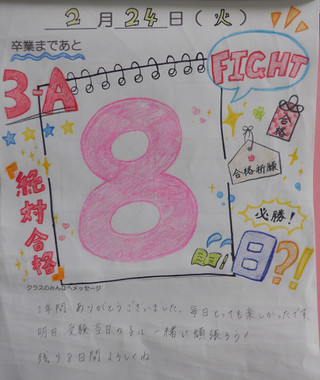 2月24日(火)
卒業まであと
FIGHT
3-A
8
合格
合格祈願
絶対合格
必勝!
日?!
クラスのみんなへメッセージ
1年間ありがとうございました。毎日とっても楽しかったです
明日受験当日の子は一緒に頑張ろう!
残り8日間よろしくね